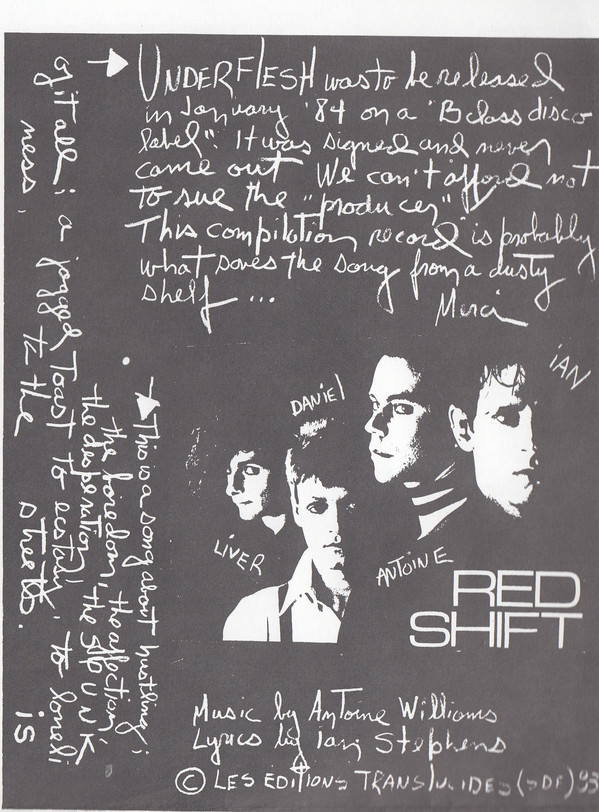 UNDERFLESH was to be released
in January '84 on a "B class disco
label". It was signed and never
came out We can't afford not
to sue the "producer"
This compilation record is probably
what saves the song from a dusty
shelf ...
Merci
IAN
DANIEL
LIVER
ANTOINE
RED
SHIFT
This is a song about hustling;
the boredom, the affection,
the desperation, the SPUNK
of it all; a jagged Toast to ecstasy, to loneli
ness, to the streets.
Music by Antoine Williams
Lyrics by Ian Stephens
© LES EDITIONS TRANSLUCIDES (SDF) 83